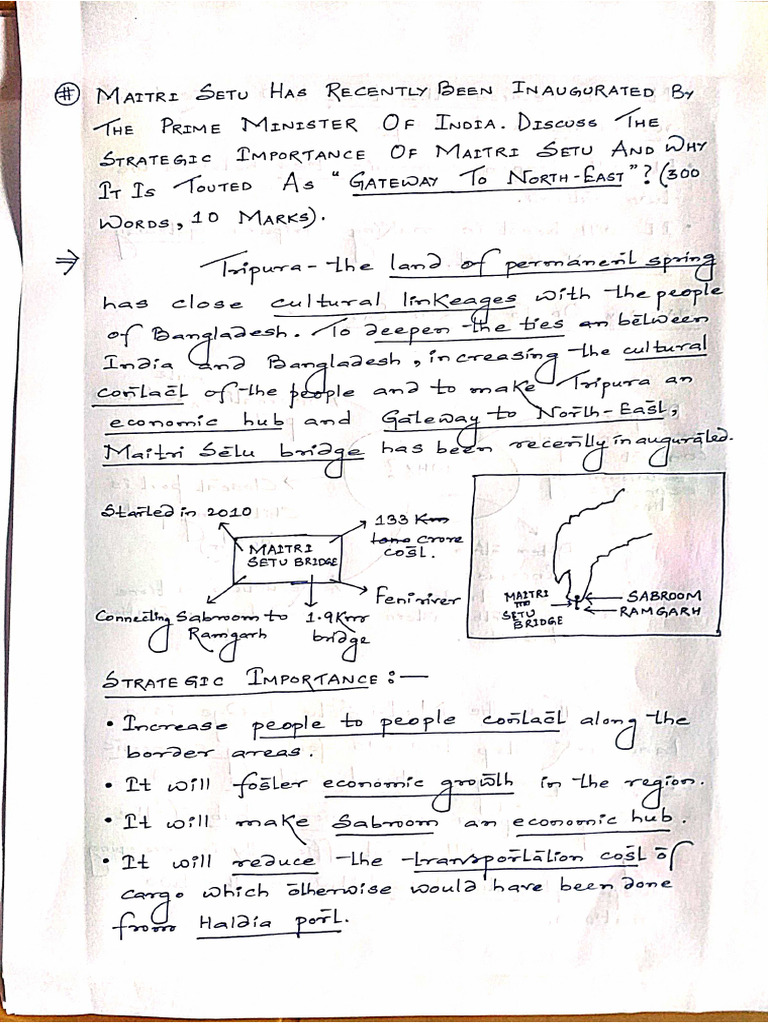 # MAITRI SETU HAS RECENTLY BEEN INAUGURATED BY
THE PRIME MINISTER OF INDIA. DISCUSS THE
STRATEGIC IMPORTANCE OF MAITRI SETU AND WHY
IT IS TOUTED AS "GATEWAY TO NORTH-EAST"? (300
WORDS, 10 MARKS).
⇒ Tripura - the land of permanent spring
has close cultural linkeages with the people
of Bangladesh. To deepen the ties an between
India and Bangladesh, increasing the cultural
contact of the people and to make Tripura an
economic hub and Gateway to North-East,
Maitri Setu bridge has been recently inaugurated.
Started in 2010
133 Km
crore
cost.
MAITRI
SETU BRIDGE
Feni river
Connecting Sabroom to
Ramgarh
1.9Km
bridge
MAITRI
SETU
BRIDGE
SABROOM
RAMGARH
STRATEGIC IMPORTANCE :—
• Increase people to people contact along the
border areas.
• It will foster economic growth in the region.
• It will make Sabroom an economic hub.
• It will reduce the transportation cost of
cargo which otherwise would have been done
from Haldia port.